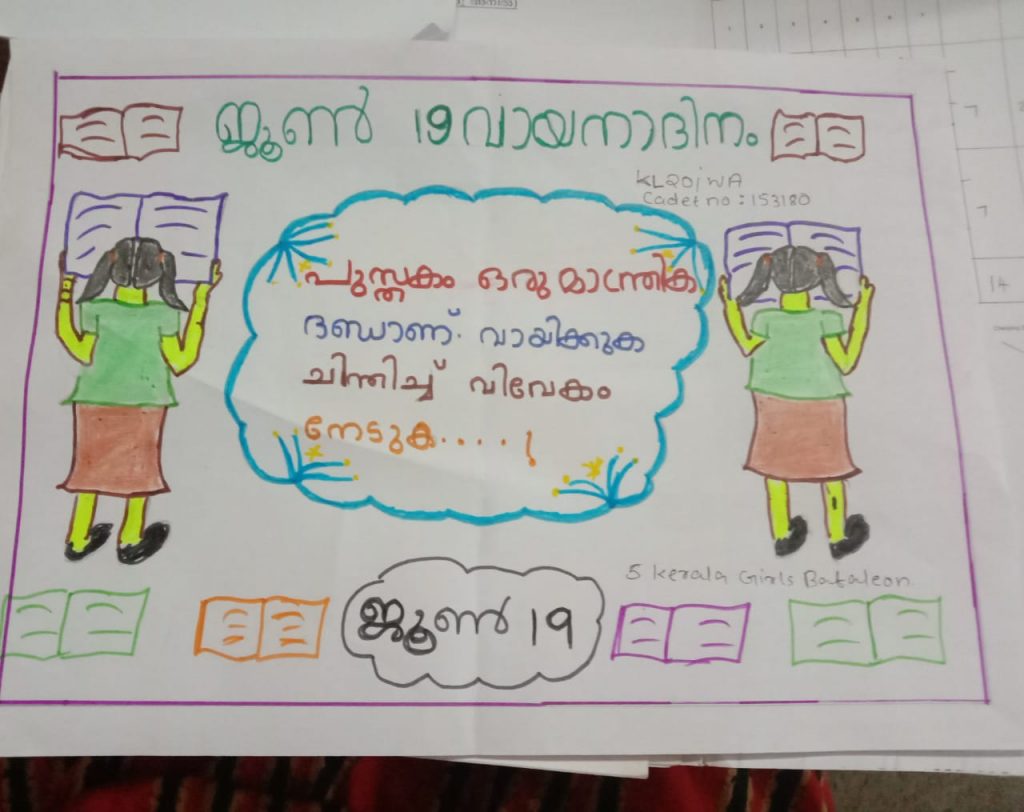 ജൂൺ 19 വായനാദിനം
KL20JWA
Cadet no : 153180
പുസ്തകം ഒരു മാന്ത്രിക
ദണ്ഡാണ്. വായിക്കുക
ചിന്തിച്ച് വിവേകം
നേടുക....!
5 Kerala Girls Bataleon
ജൂൺ 19
7
7
14